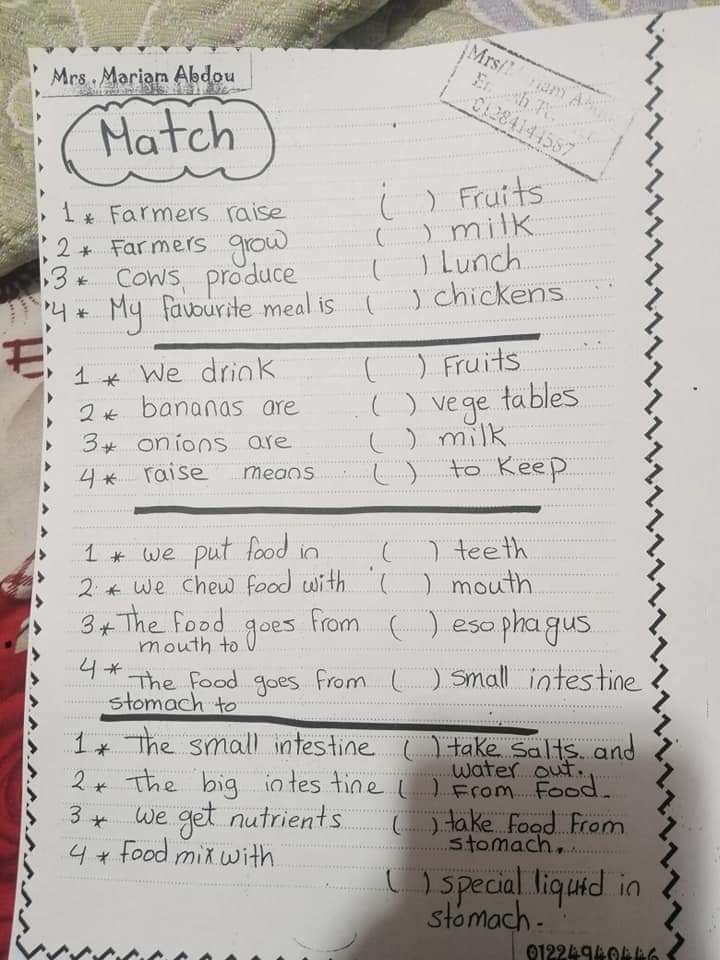 Mrs. Mariam Abdou
Mrs/
01284144587
Match
1 * Farmers raise ( ) Fruits
2 * Farmers grow ( ) milk
3 * Cows produce ( ) Lunch
4 * My favourite meal is ( ) chickens
1 * We drink ( ) Fruits
2 * bananas are ( ) vegetables
3 * onions are ( ) milk
4 * raise means ( ) to Keep
1 * we put food in ( ) teeth
2 * we chew food with ( ) mouth
3 * The food goes from ( ) esophagus
mouth to
4 * The food goes from ( ) small intestine
stomach to
1 * The small intestine ( ) take salts and
water out.
2 * The big intestine ( ) From Food.
3 * we get nutrients ( ) take food from
stomach.
4 * food mix with
( ) special liquid in
stomach.
01224940446